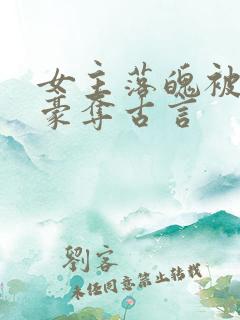 女主落魄被
豪夺古言
劉客
未经同意禁止转载